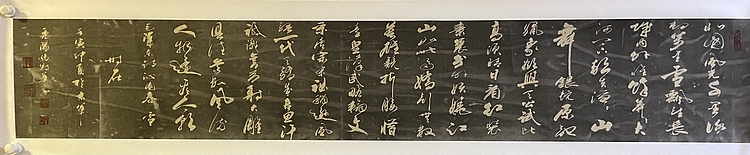 北國風光千里冰
封萬里雪飄望長
城内外惟餘莽莽大
河上下頓失滔滔山
舞銀蛇原馳
蠟象欲與天公試比
高須晴日看紅裝
素裹分外妖嬈江
山如此多嬌引無數
英雄競折腰惜
秦皇漢武略輸文
采唐宗宋祖稍遜風
騷一代天驕成吉思汗
祗識彎弓射大雕
俱往矣數風流
人物還看今朝
毛澤東詞沁園春雪
時在
壬寅仲夏於